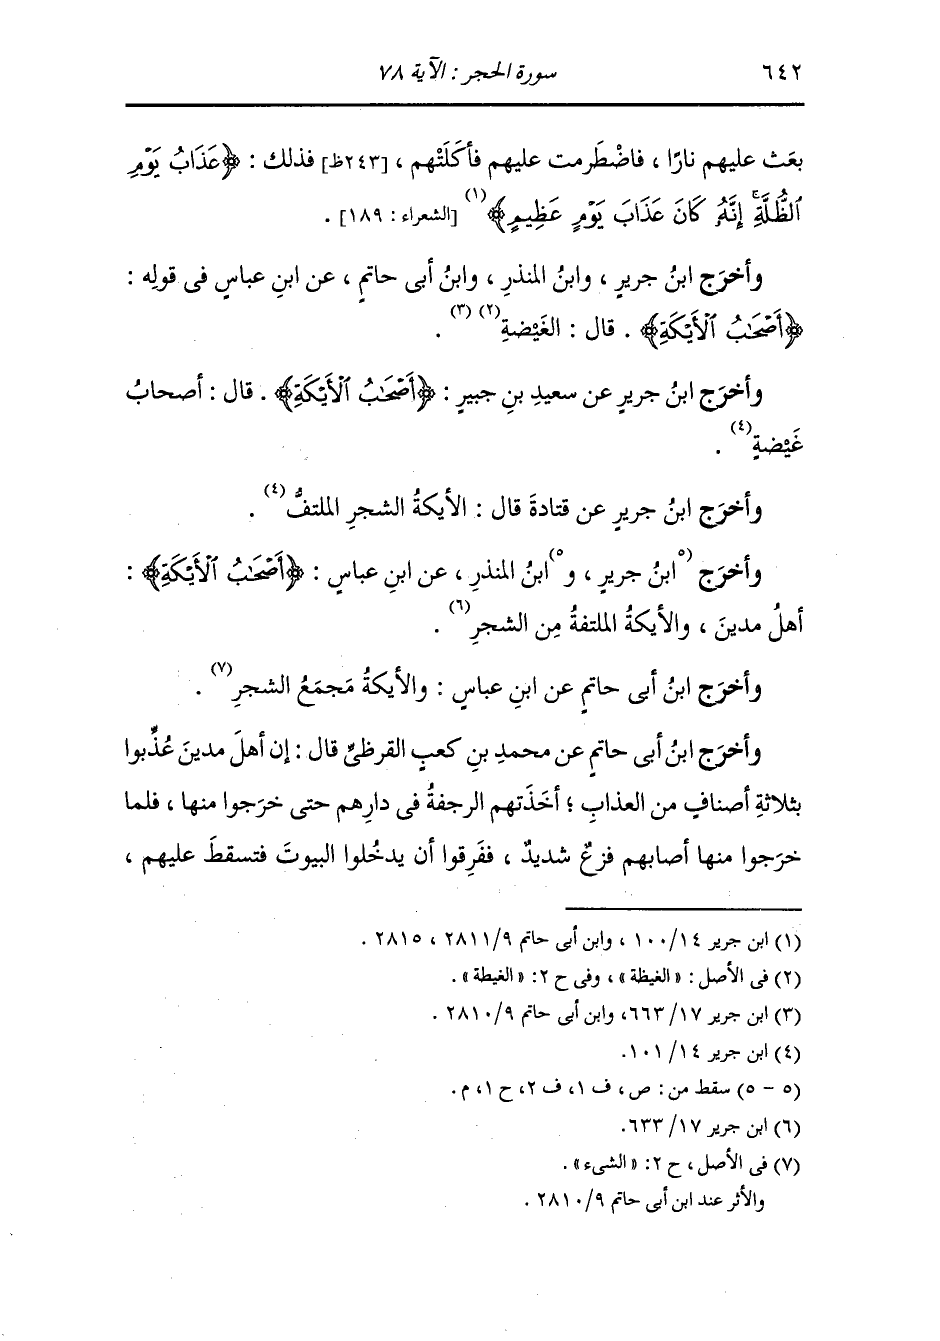 ٦٤٢ سورة الحجر : الآية ٧٨
بعَث عليهم نارًا ، فاضْطَرمت عليهم فأكَلَتْهم ، [٢٤٣ظ] فذلك : ﴿عَذَابُ يَوْمِ
ٱلظُّلَّةِۚ إِنَّهُۥ كَانَ عَذَابَ يَوْمٍ عَظِيمٍ﴾(١) [الشعراء : ١٨٩] .
وأخرَج ابنُ جريرٍ ، وابنُ المنذرِ ، وابنُ أبى حاتمٍ ، عن ابنِ عباسٍ فى قولِه :
﴿أَصْحَٰبُ ٱلْأَيْكَةِ﴾ . قال : الغَيْضةِ(٢) (٣) .
وأخرَج ابنُ جريرٍ عن سعيدِ بنِ جبيرٍ : ﴿أَصْحَٰبُ ٱلْأَيْكَةِ﴾ . قال : أصحابُ
غَيْضةٍ(٤) .
وأخرَج ابنُ جريرٍ عن قتادةَ قال : الأيكةُ الشجرِ الملتفُّ(٤) .
وأخرَج (٥ابنُ جريرٍ ، و٥)ابنُ المنذرِ ، عن ابنِ عباسٍ : ﴿أَصْحَٰبُ ٱلْأَيْكَةِ﴾ :
أهلُ مدينَ ، والأيكةُ الملتفةُ مِن الشجرِ(٦) .
وأخرَج ابنُ أبى حاتمٍ عن ابنِ عباسٍ : والأيكةُ مَجمَعُ الشجرِ(٧) .
وأخرَج ابنُ أبى حاتمٍ عن محمدِ بنِ كعبٍ القرظىِّ قال : إن أهلَ مدينَ عُذِّبوا
بثلاثةِ أصنافٍ من العذابِ ؛ أخَذَتهم الرجفةُ فى دارِهم حتى خرَجوا منها ، فلما
خرَجوا منها أصابهم فزعٌ شديدٌ ، ففَرِقوا أن يدخُلوا البيوتَ فتسقطَ عليهم ،
(١) ابن جرير ١٤/ ١٠٠ ، وابن أبى حاتم ٩/ ٢٨١١ ، ٢٨١٥ .
(٢) فى الأصل : «الغيظة» ، وفى ح ٢: «الغيطة» .
(٣) ابن جرير ١٧/ ٦٦٣، وابن أبى حاتم ٩/ ٢٨١٠ .
(٤) ابن جرير ١٤/ ١٠١.
(٥ - ٥) سقط من : ص ، ف ١، ف ٢، ح ١، م .
(٦) ابن جرير ١٧/ ٦٣٣.
(٧) فى الأصل ، ح ٢: «الشىء» .
والأثر عند ابن أبى حاتم ٩/ ٢٨١٠ .